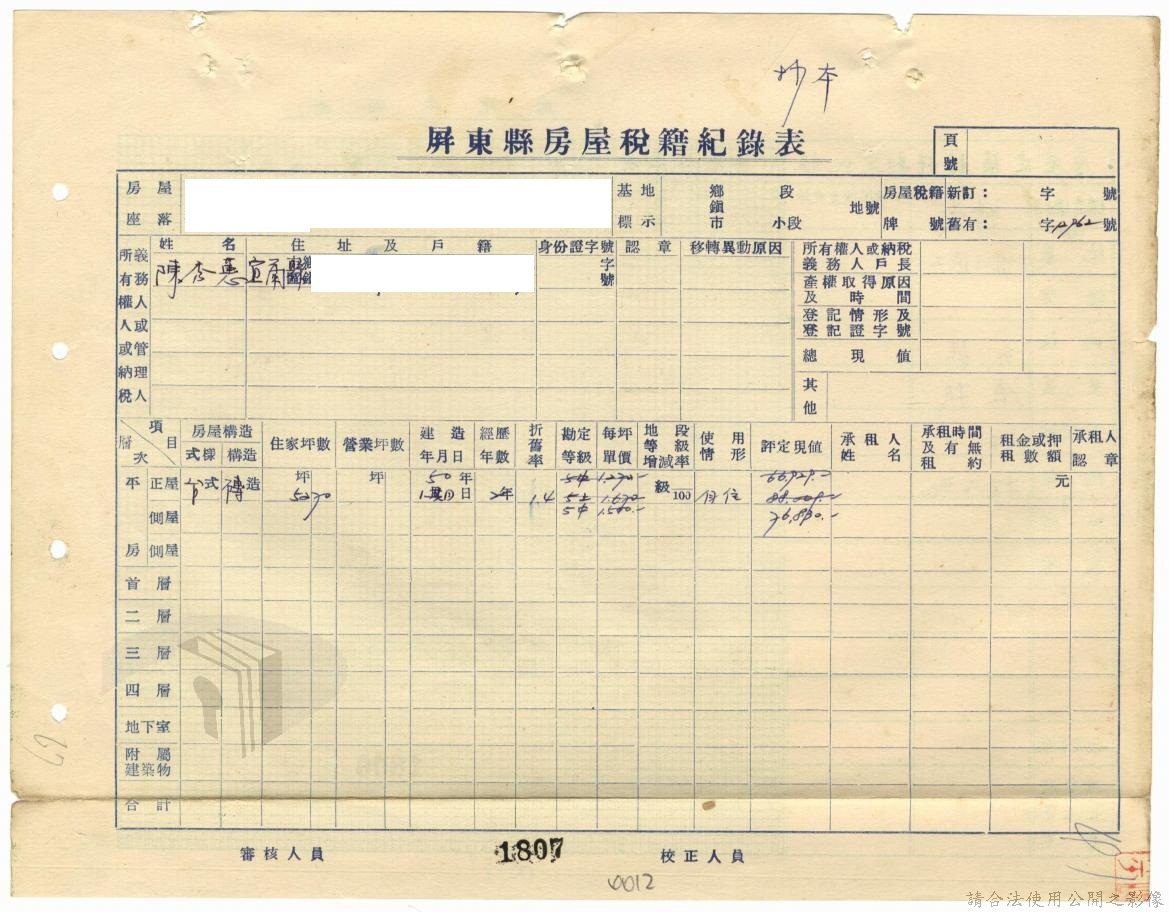 抄本
屏東縣房屋稅籍紀錄表
頁號
房屋座落
基地標示 鄉鎮市 段 小段 地號
房屋稅籍牌號 新訂： 字 號
舊有： 字 號
姓名 住址及戶籍 身份證字號 認章 移轉異動原因
所有權人或納稅義務人或管理人
陳秀惠
字號
所有權人或納稅義務人戶長
產權取得原因及時間
登記情形及登記證字號
總現值
其他
項目 層次 房屋構造 式樣 構造 住家坪數 營業坪數 建造年月日 經歷年數 折舊率 勘定等級 每坪單價 地段等級增減率 使用情形 評定現值 承租人姓名 承租時間及有無租約 租金或押租數額 承租人認章
平房 正屋 台式 磚造 坪 5270 坪 50年 日 2年 1.4 級 100 自住 元
5中 1.270- 66,929.-
5上 1.670-
5中 76,830.-
側屋
側屋
首層
二層
三層
四層
地下室
附屬建築物
合計
審核人員 1807 校正人員
0012
請合法使用公開之影像